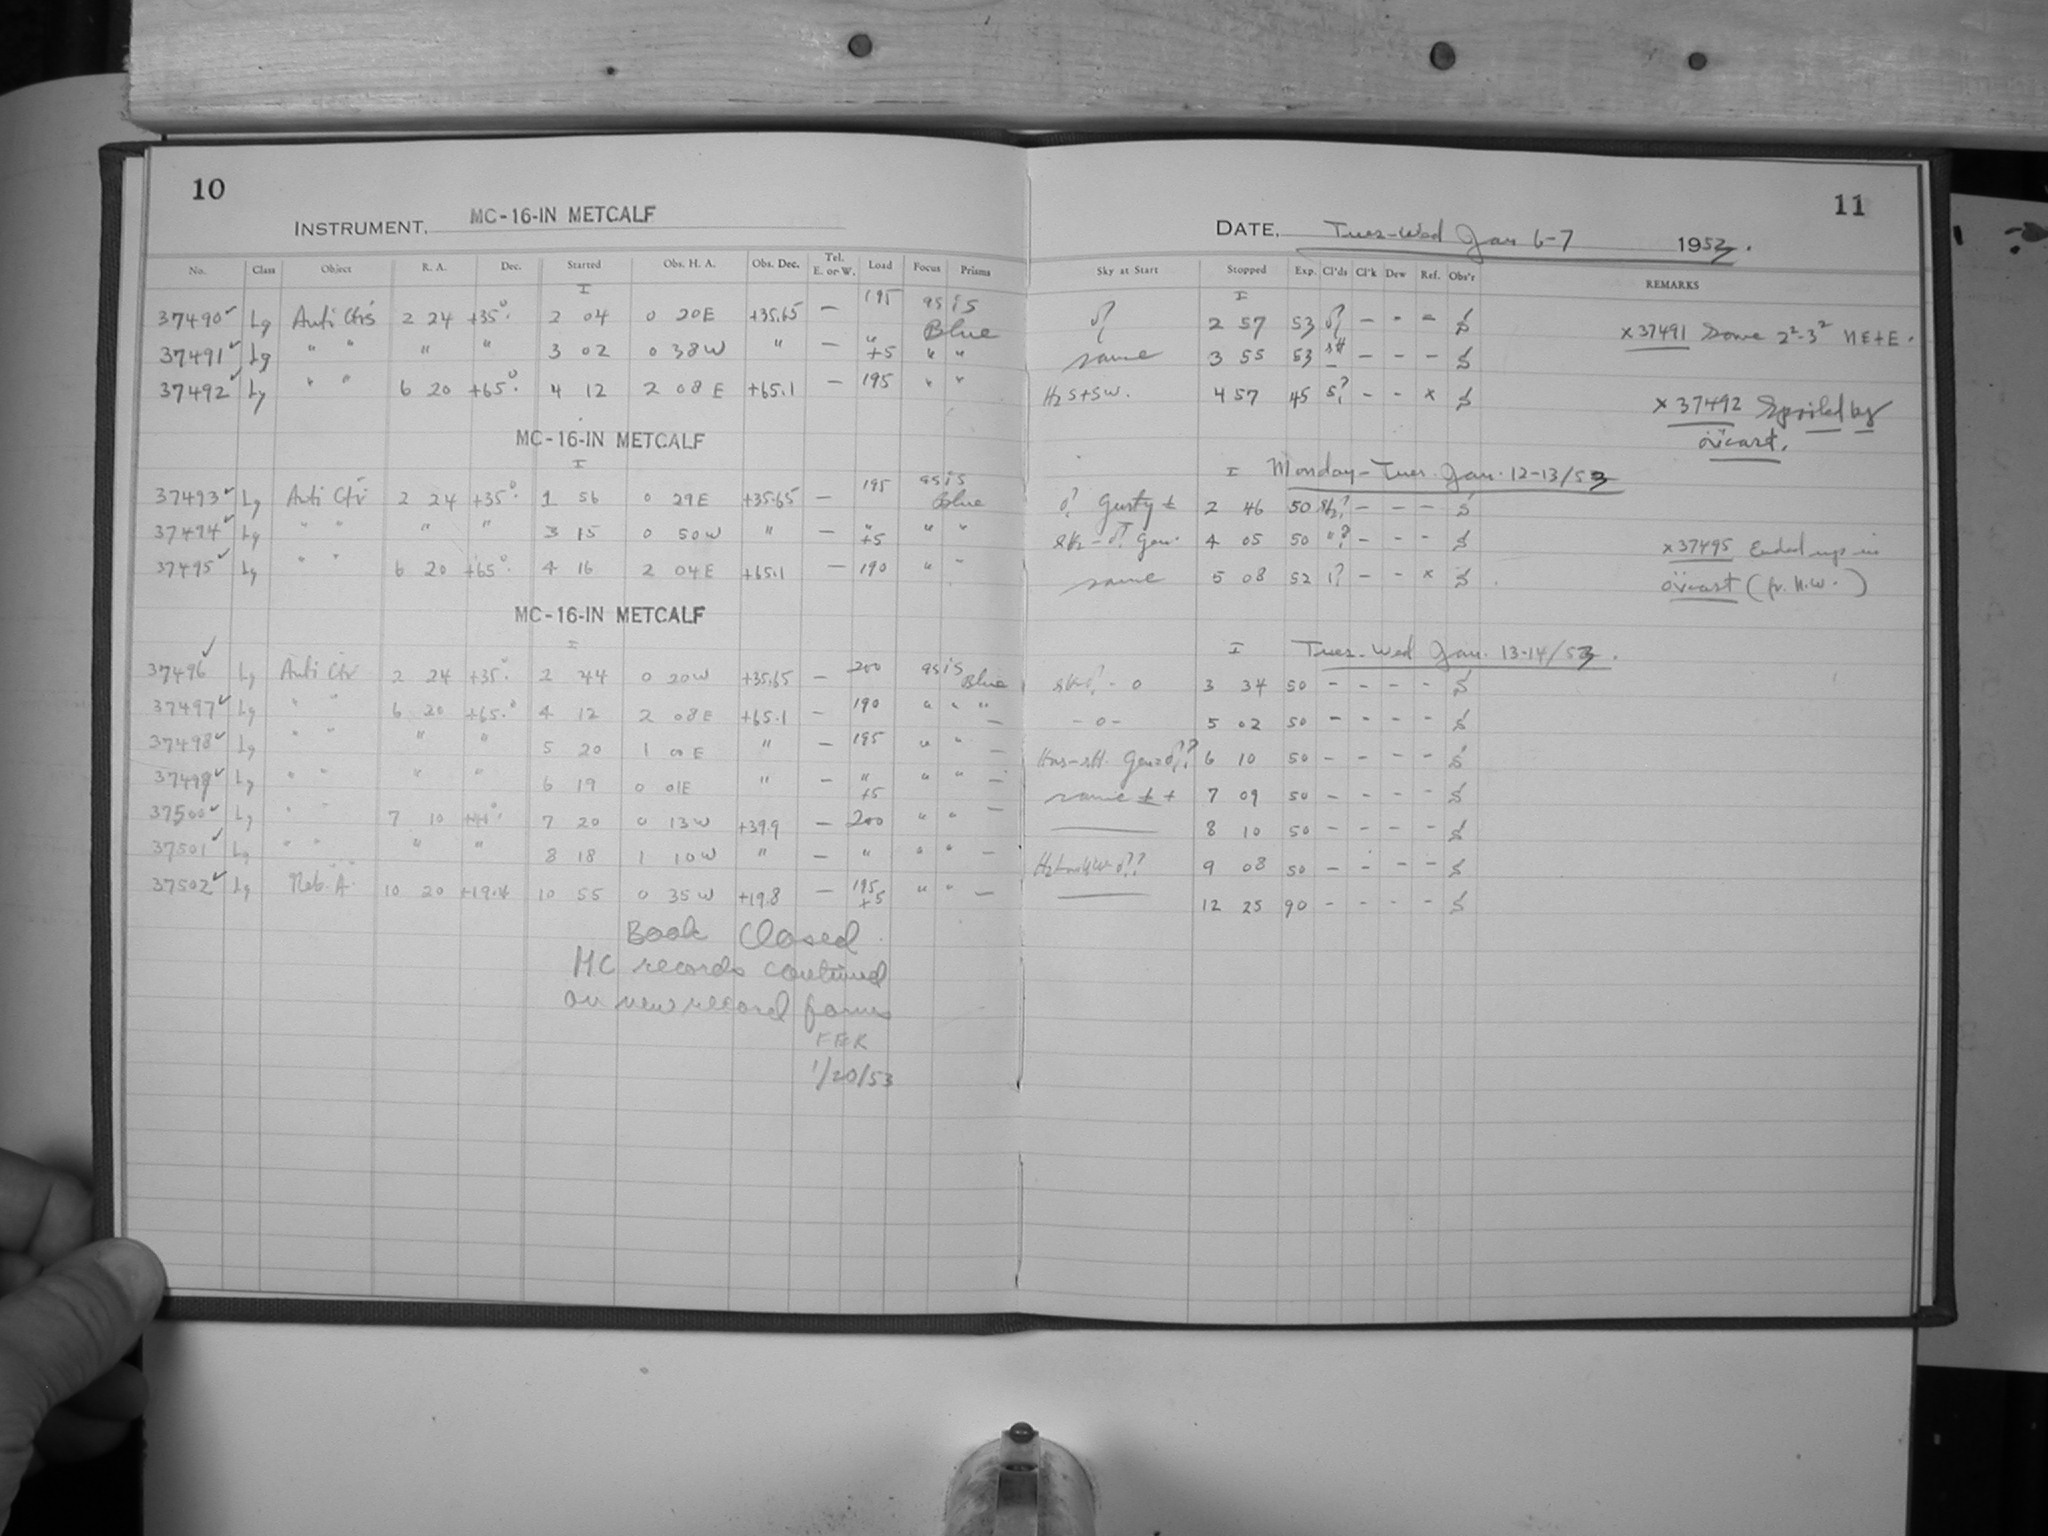 10
INSTRUMENT, MC-16-IN METCALF
No. Class Object R. A. Dec. Started Obs. H. A. Obs. Dec. Tel. E. or W. Load Focus Prisms
I
37490 Lg Anti Ctrs 2 24 +35° 2 04 0 20E +35.65 — 195 as is Blue
37491 Lg " " " " 3 02 0 38W " — " +5 " "
37492 Lg " " 6 20 +65° 4 12 2 08 E +65.1 — 195 " "
MC-16-IN METCALF
I
37493 Lg Anti Ctr 2 24 +35° 1 56 0 29E +35.65 — 195 as is Blue
37494 Lg " " " " 3 15 0 50W " — " +5 " "
37495 Lg " " 6 20 +65° 4 16 2 04E +65.1 — 190 " "
MC-16-IN METCALF
I
37496 Lg Anti Ctr 2 24 +35° 2 44 0 20W +35.65 — 200 as is Blue
37497 Lg " " 6 20 +65° 4 12 2 08E +65.1 — 190 " " "
37498 Lg " " " " 5 20 1 00E " — 195 " " —
37499 Lg " " " " 6 19 0 01E " — " +5 " " —
37500 Lg " " 7 10 7 20 0 13W +39.9 — 200 " " —
37501 Lg " " " " 8 18 1 10W " — " " " —
37502 Lg Neb. A. 10 20 +19.4 10 55 0 35W +19.8 — 195 +5 " " —
Book Closed
MC records continued
on new record forms
FER
1/20/53
11
DATE, Tues-Wed Jan 6-7 1953.
Sky at Start Stopped Exp. Cl'ds Cl'k Dew Ref. Obs'r REMARKS
I
2 57 53 — — —
x 37491 Some 2²-3² N E + E.
same 3 55 53 — — —
Hz S+SW. 4 57 45 S? — — x
x 37492 Spoiled by
ov'cast.
I Monday-Tues. Jan. 12-13/53
Gusty ± 2 46 50 — — —
4 05 50 — — —
x 37495 Ended up in
ov'cast (fr. N.W.)
same 5 08 52 1? — — x
I Tues-Wed Jan. 13-14/53.
3 34 50 — — — —
-0- 5 02 50 — — — —
6 10 50 — — — —
same ± + 7 09 50 — — — —
8 10 50 — — — —
9 08 50 — — — —
12 25 90 — — — —